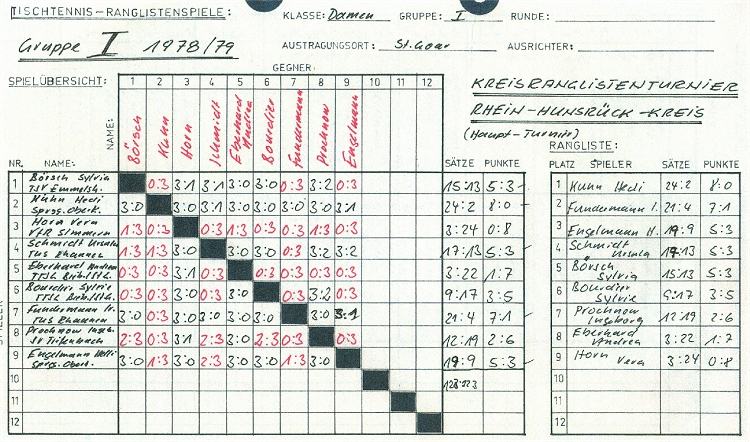 TISCHTENNIS-RANGLISTENSPIELE: KLASSE: Damen GRUPPE: I RUNDE:
Gruppe I 1978/79 AUSTRAGUNGSORT: St. Goar AUSRICHTER:
GEGNER:
SPIELÜBERSICHT: 1 2 3 4 5 6 7 8 9 10 11 12
KREISRANGLISTENTURNIER
RHEIN-HUNSRÜCK-KREIS
(Haupt-Turnier)
NAME: Börsch Kuhn Horn Schmidt Eberhard Andrea Bourdier Fundermann Prochnow Engelmann
RANGLISTE:
NR. NAME: SÄTZE PUNKTE
PLATZ SPIELER SÄTZE PUNKTE
1 Börsch Sylvia 0:3 3:1 3:1 3:0 3:0 0:3 3:2 0:3 15:13 5:3
TSV Emmelsh.
2 Kuhn Hedi 3:0 3:0 3:0 3:0 3:0 3:0 3:0 3:1 24:2 8:0
Spvgg. Oberk.
3 Horn Vera 1:3 0:3 0:3 1:3 0:3 0:3 1:3 0:3 3:24 0:8
VfR Simmern
4 Schmidt Ursula 1:3 1:3 3:0 3:0 3:0 0:3 3:2 3:2 17:13 5:3
TUS Rhaunen
5 Eberhard Andrea 0:3 0:3 3:1 0:3 0:3 0:3 0:3 0:3 3:22 1:7
6 Bourdier Sylvie 0:3 0:3 3:0 0:3 3:0 0:3 3:2 0:3 9:17 3:5
7 Fundermann I. 3:0 0:3 3:0 3:0 3:0 3:0 3:0 3:1 21:4 7:1
TUS Rhaunen
8 Prochnow Ingeb. 2:3 0:3 3:1 2:3 3:0 2:3 0:3 0:3 12:19 2:6
SV Tiefenbach
9 Engelmann Helli 3:0 1:3 3:0 2:3 3:0 3:0 1:3 3:0 19:9 5:3
Spvgg. Oberk.
10 123:123
11
12
1 Kuhn Hedi 24:2 8:0
2 Fundermann I. 21:4 7:1
3 Engelmann H. 19:9 5:3
4 Schmidt Ursula 17:13 5:3
5 Börsch Sylvia 15:13 5:3
6 Bourdier Sylvie 9:17 3:5
7 Prochnow Ingeborg 12:19 2:6
8 Eberhard Andrea 3:22 1:7
9 Horn Vera 3:24 0:8
10
11
12